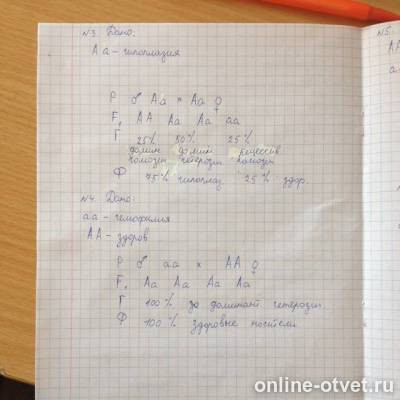 №3. Дано:
Аа - гипоплазия
Р ♂ Аа × Аа ♀
F₁ АА Аа Аа аа
Г 25% 50% 25%
домин домин рецессив
гомозиг гетерозиг гомозиг
Ф 75% гипоплаз 25% здор.
№4. Дано:
аа - гемофилия
АА - здоров
Р ♂ аа × АА ♀
F₁ Аа Аа Аа Аа
Г 100% за доминант гетерозиг
Ф 100% здоровые носители
№5.
АА
а-
online-otvet.ru